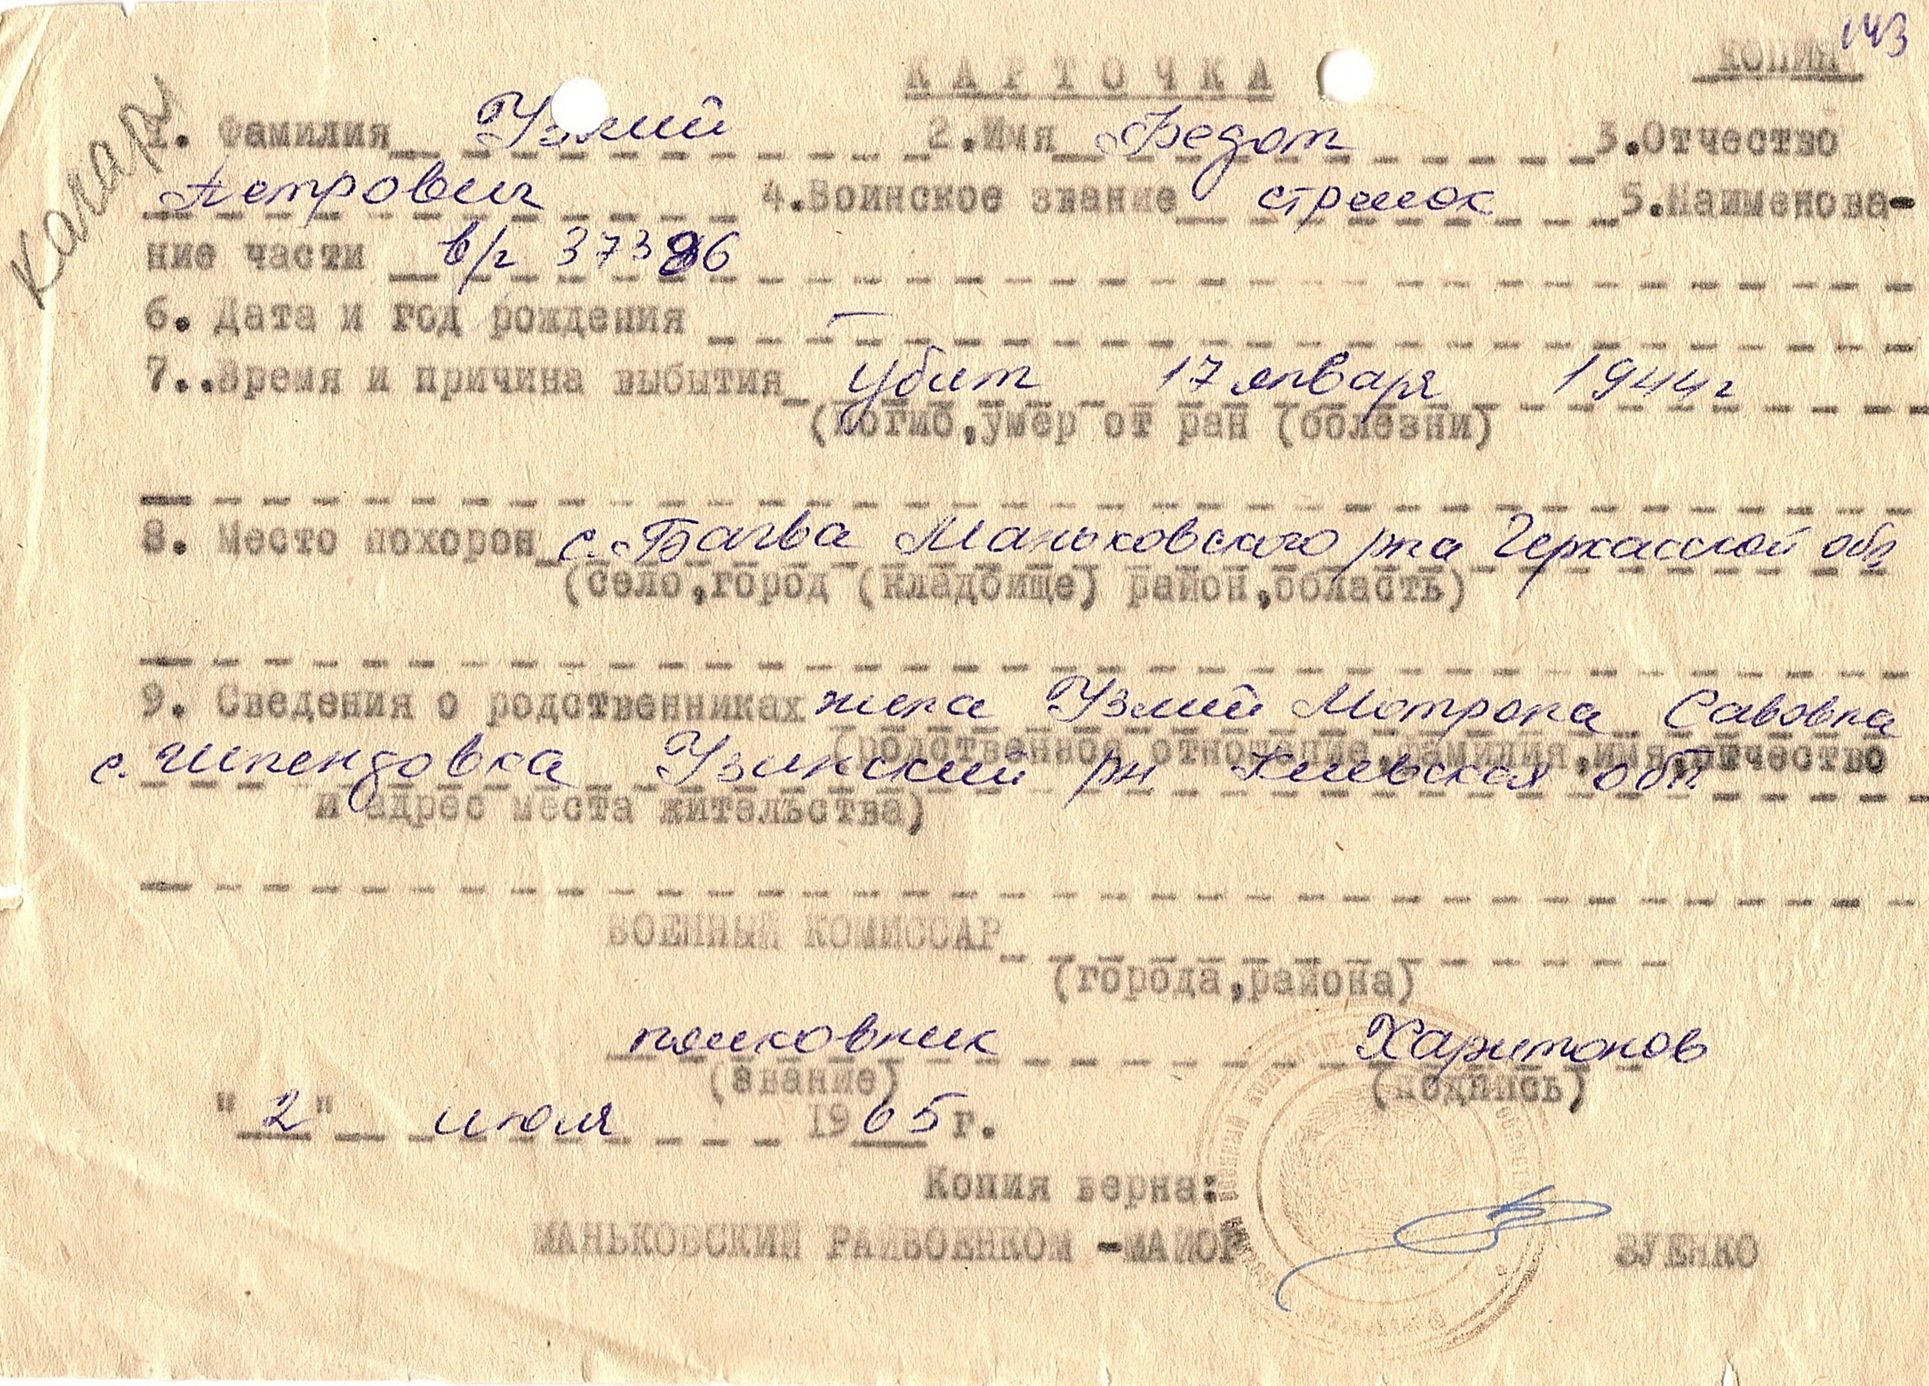 143
КОПИЯ
КАРТОЧКА
1. Фамилия Узлий 2.Имя Федот 3.Отчество
Петрович 4.Воинское звание стрелок 5.Наименова-
ние части в/ч 37386
6. Дата и год рождения —
7..Время и причина выбытия убит 17 января 1944 г
(погиб,умер от ран (болезни)
8. Место похорон с.Багва Маньковского р-на Черкасской обл
(село,город (кладбище) район,область)
9. Сведения о родственниках жена Узлий Мотрона Савовна
(родственное отношение,фамилия,имя,отчество
с. Шпендовка Узинский р-н Киевская обл
и адрес места жительства)
ВОЕННЫЙ КОМИССАР
(города,района)
полковник Харитонов
(звание) (подпись)
"2" июля 1965 г.
Копия верна:
МАНЬКОВСКИЙ РАЙВОЕНКОМ -МАЙОР ЗУЕНКО